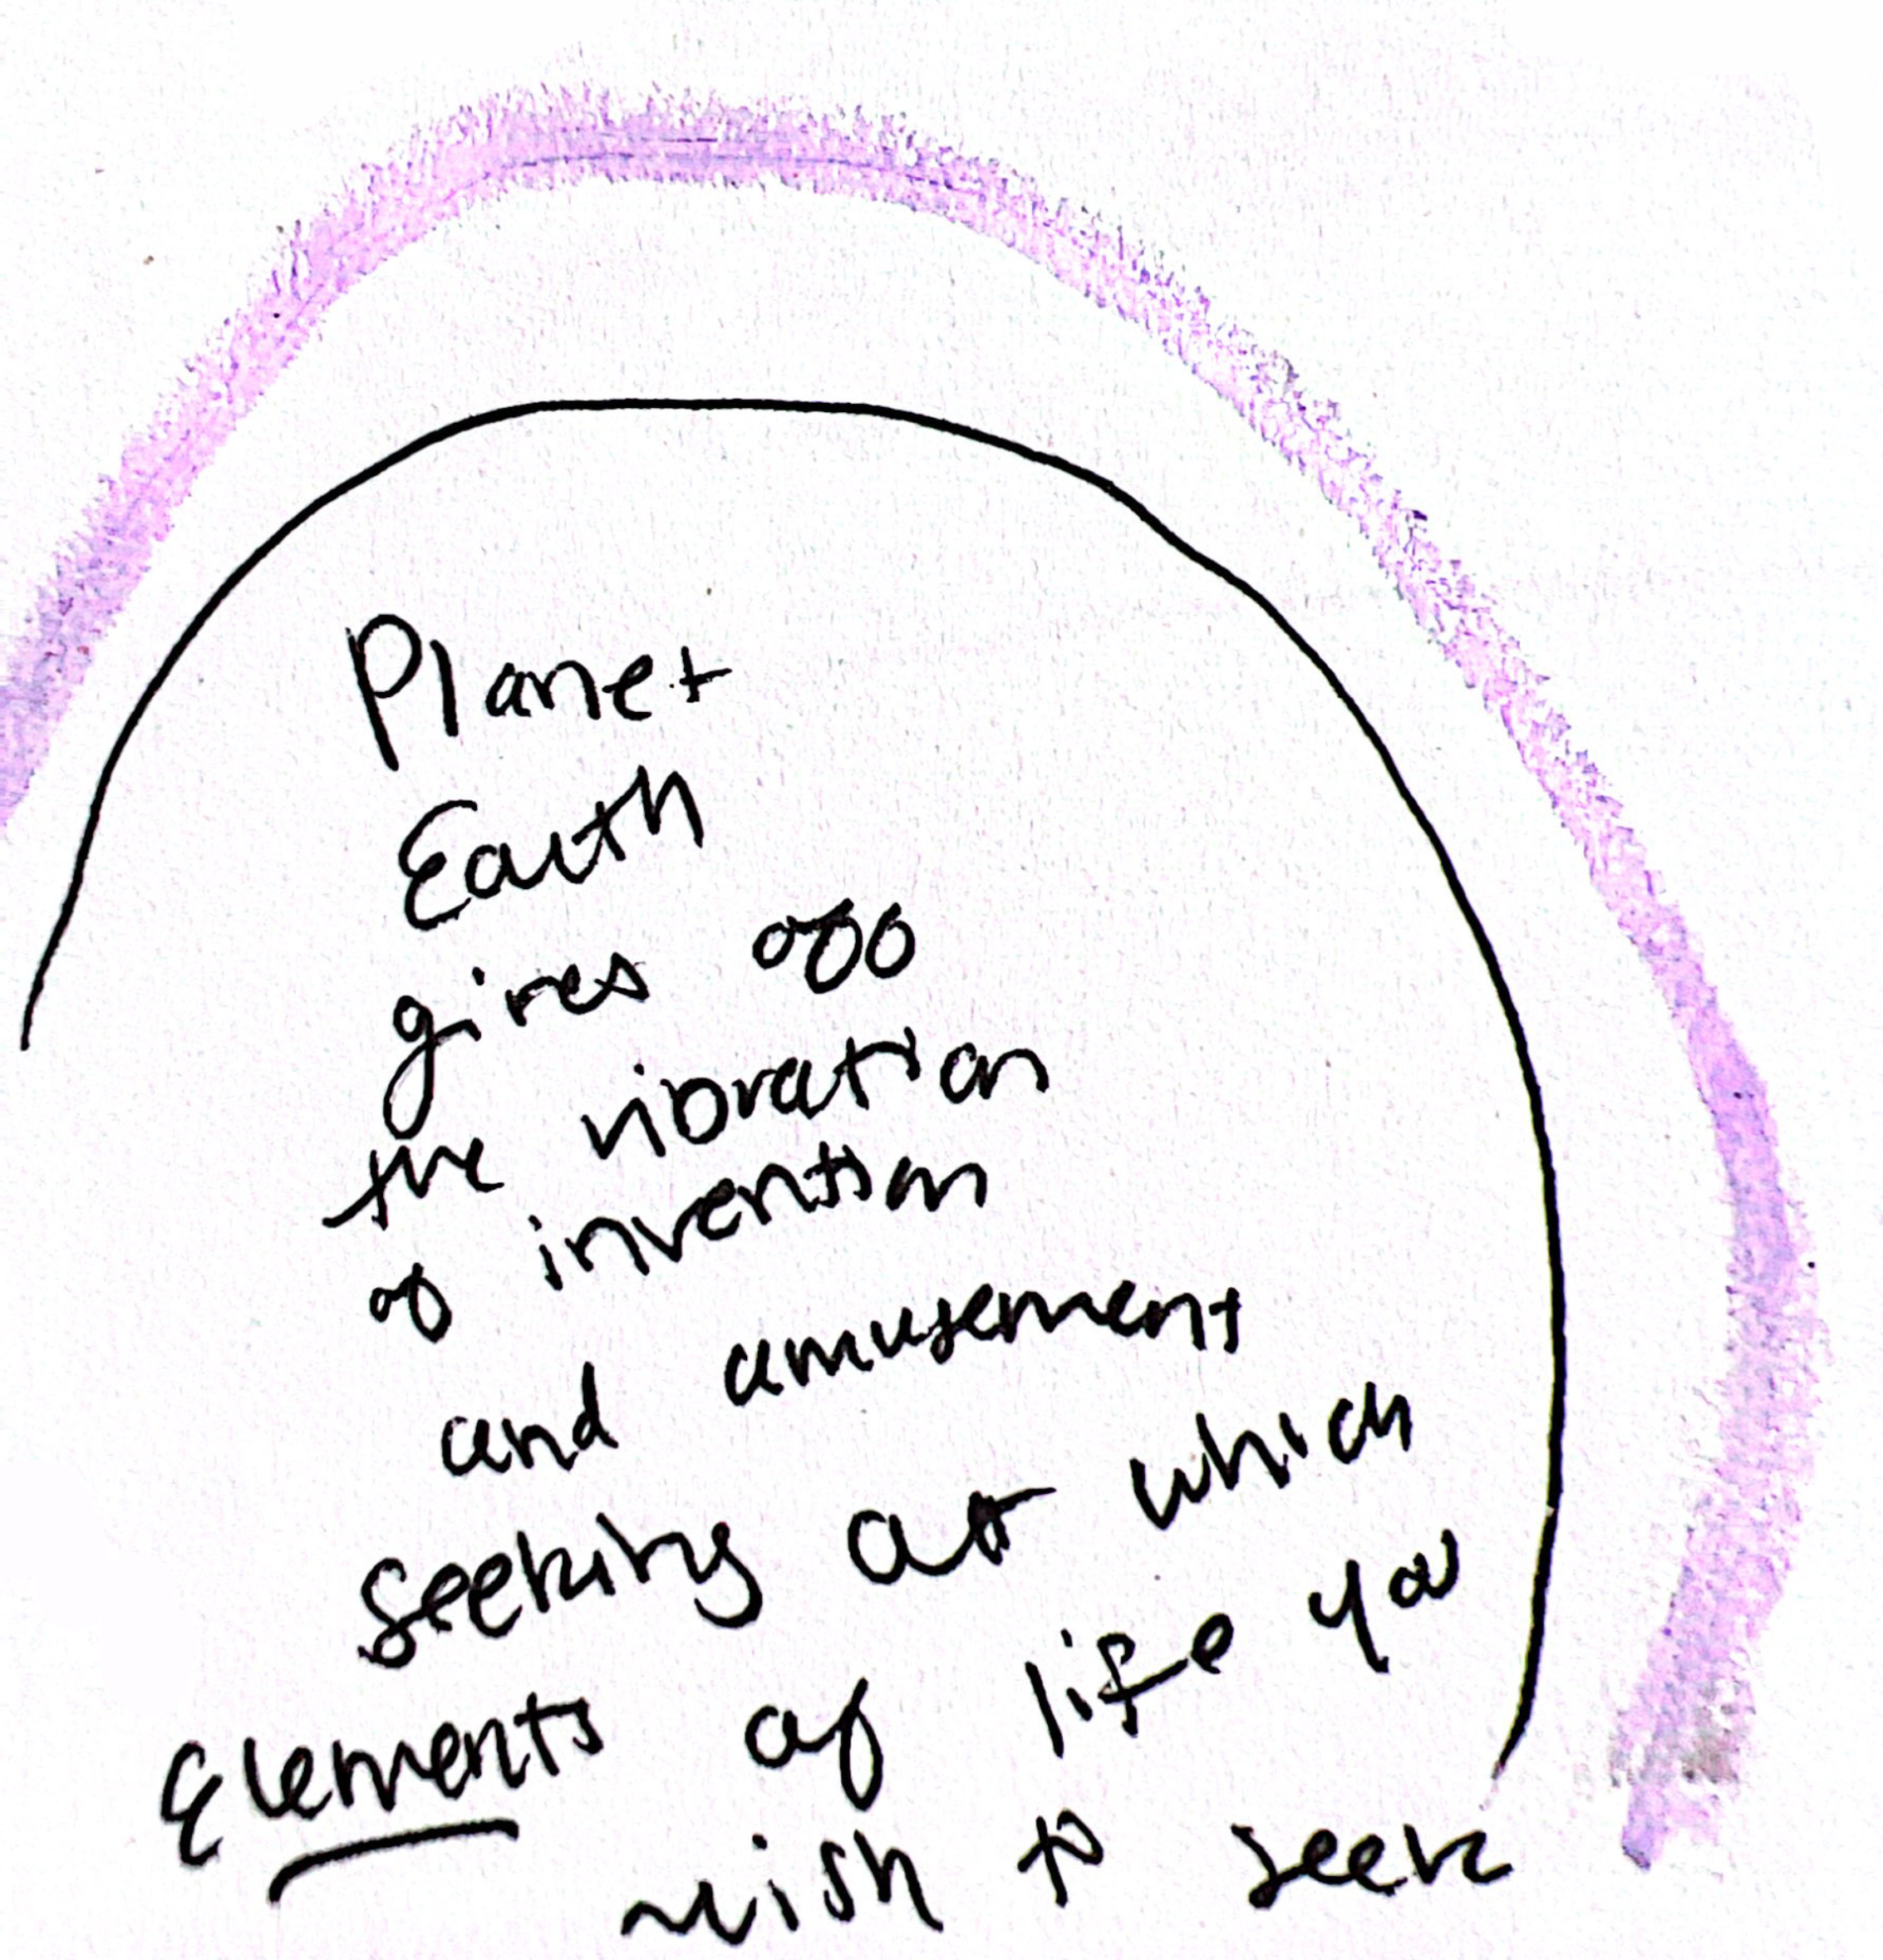 Planet
Earth
gives off
the vibration
of invention
and amusement
seeking at which
Elements of life you
wish to seek